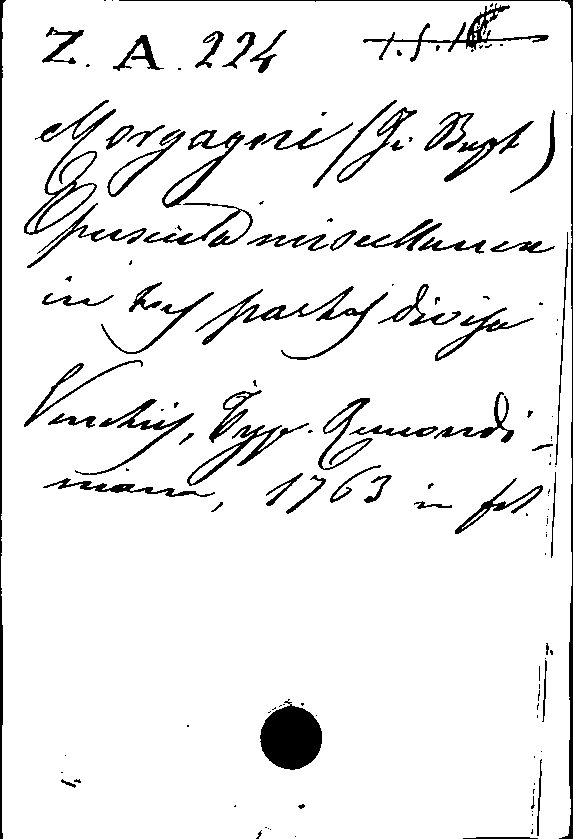 Z. A. 224
Morgagni (Gi. Bapt)
Opuscula miscellanea
in tres partes divisa
Venetiis, Typ. Remondi-
niana, 1763 in fol.